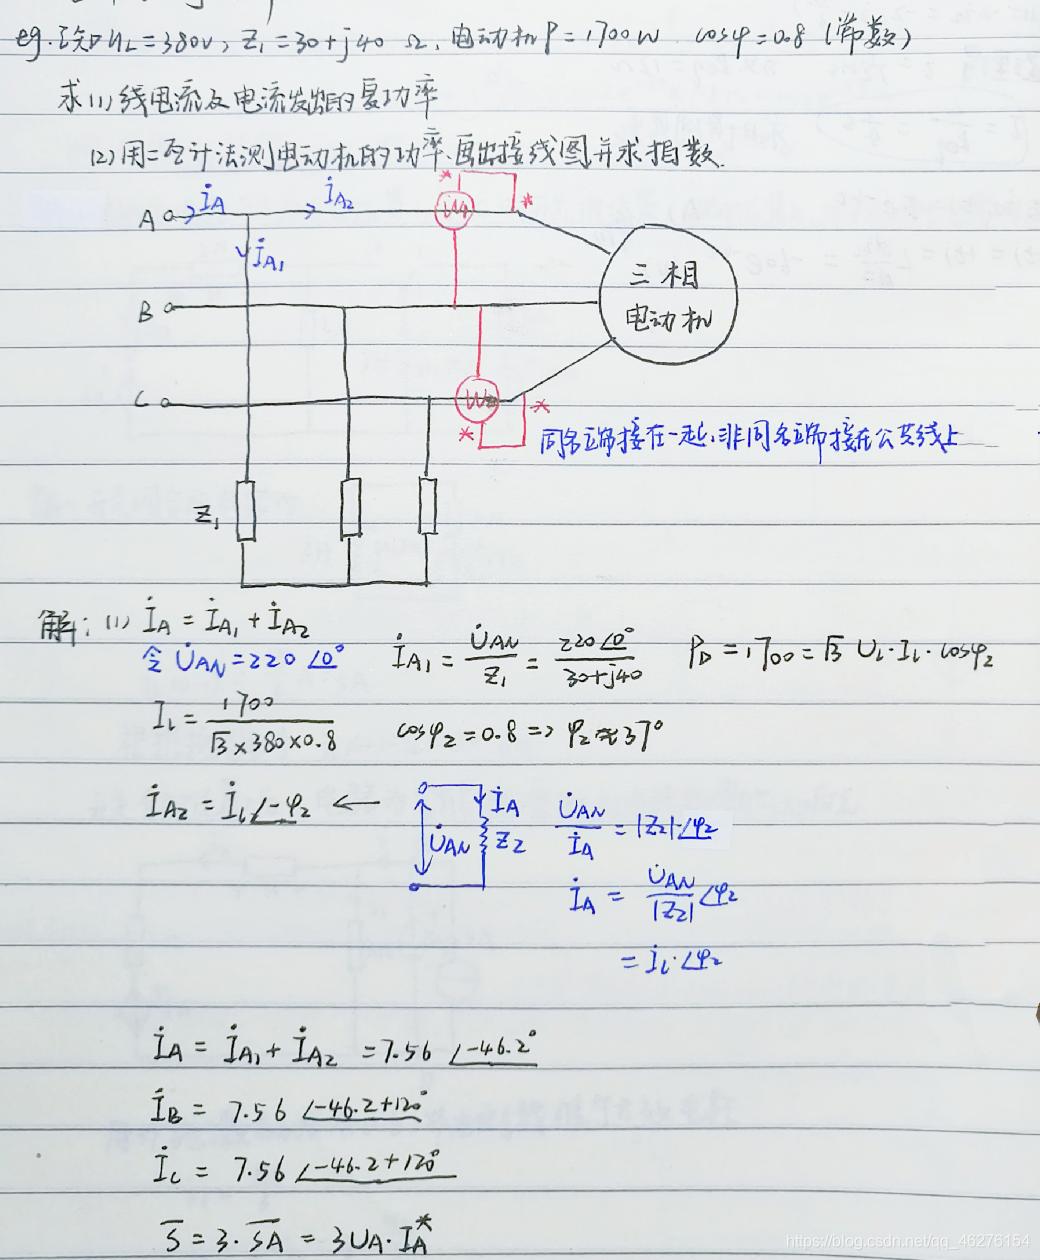 eg. 已知 U_L=380V, Z₁=30+j40 Ω, 电动机 P=1700W cosφ=0.8 (常数)
求(1)线电流及电流发出的复功率
(2)用二瓦计法测电动机的功率、画出接线图并求指数.
A İ_A İ_A2 * W₁ *
İ_A1
B
三相
电动机
C W₂ * *
同名端接在一起,非同名端接在公共线上
Z₁
解: (1) İ_A = İ_A1 + İ_A2
令 U̇_AN=220∠0° İ_A1 = U̇_AN/Z₁ = 220∠0°/(30+j40) P_D=1700=√3 U_L·I_L·cosφ₂
I_L = 1700/(√3×380×0.8) cosφ₂=0.8 => φ₂≈37°
İ_A2 = İ_L∠-φ₂ ← U̇_AN İ_A Z₂ U̇_AN/İ_A = |Z₂|∠φ₂
İ_A = U̇_AN/|Z₂| ∠φ₂
= İ_L·∠φ₂
İ_A = İ_A1 + İ_A2 = 7.56 ∠-46.2°
İ_B = 7.56 ∠-46.2+120°
İ_C = 7.56 ∠-46.2+120°
S̅ = 3·S̅A̅ = 3U_A·I_A*
https://blog.csdn.net/qq_46276154